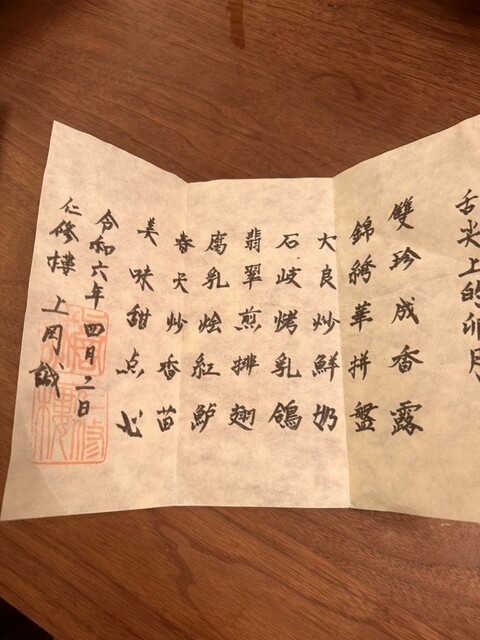 舌尖上的卯月
雙珍成香露
錦綉華拼盤
大良炒鮮奶
石岐烤乳鴿
翡翠煎排翅
腐乳烩紅鱸
春天炒香苗
美味甜点心
令和六年四月二日
仁修樓 上岡誠